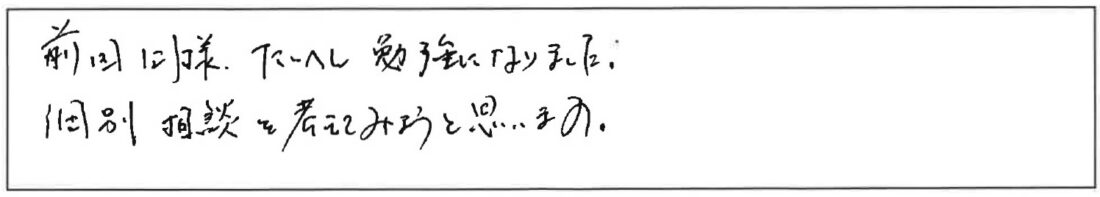 前回同様、たいへん勉強になりました。
個別相談を考えてみようと思います。